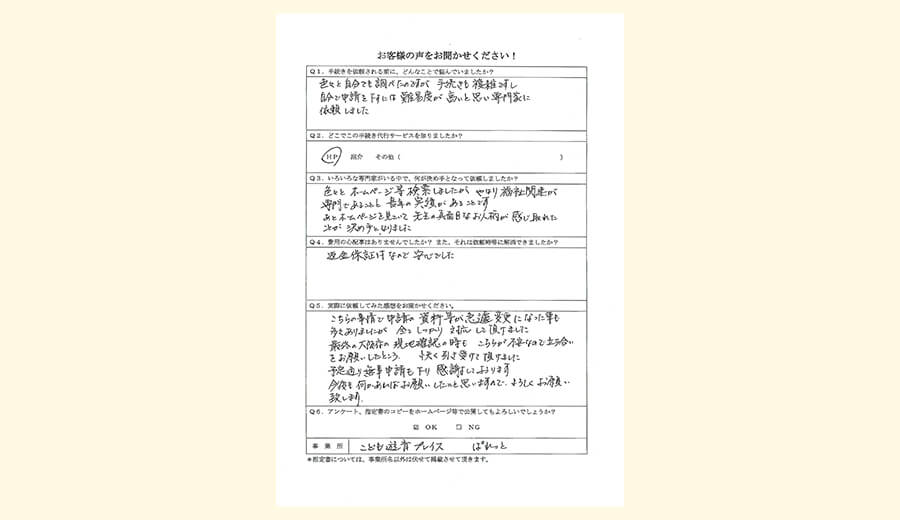 お客様の声をお聞かせください！
Q１．手続きを依頼される前に、どんなことで悩んでいましたか？
色々と自分でも調べたのですが 手続きも複雑ですし
自分で申請を下すには難易度が高いと思い専門家に
依頼しました
Q２．どこでこの手続き代行サービスを知りましたか？
HP 紹介 その他（ ）
Q３．いろいろな専門家がいる中で、何が決め手となって依頼しましたか？
色々と ホームページ等検索しましたが やはり福祉関連が
専門であることと 長年の実績があることです
あとホームページを見ていて 先生の真面目なお人柄が感じ取れた
ことが 決め手となりました
Q４．費用の心配事はありませんでしたか？ また、それは依頼時等に解消できましたか？
返金保証付なので 安心でした
Q５．実際に依頼してみた感想をお聞かせください。
こちらの事情で申請の 資料等が急遽変更になった事も
多々ありましたが 全て しっかり 対応して頂けました
最終の大阪府の 現地確認の時も こちらが不安なので立ち合い
をお願いしたところ、 快く引き受けて頂けました
予定通り無事申請も下り 感謝しております
今後も何かあればお願いしたいと思いますので、よろしくお願い
致します。
Q６．アンケート、指定書のコピーをホームページ等で公開してもよろしいでしょうか？
☑ OK □ NG
事業所 こども遊育プレイス ぱれっと
＊指定書については、事業所名以外は伏せて掲載させて頂きます。